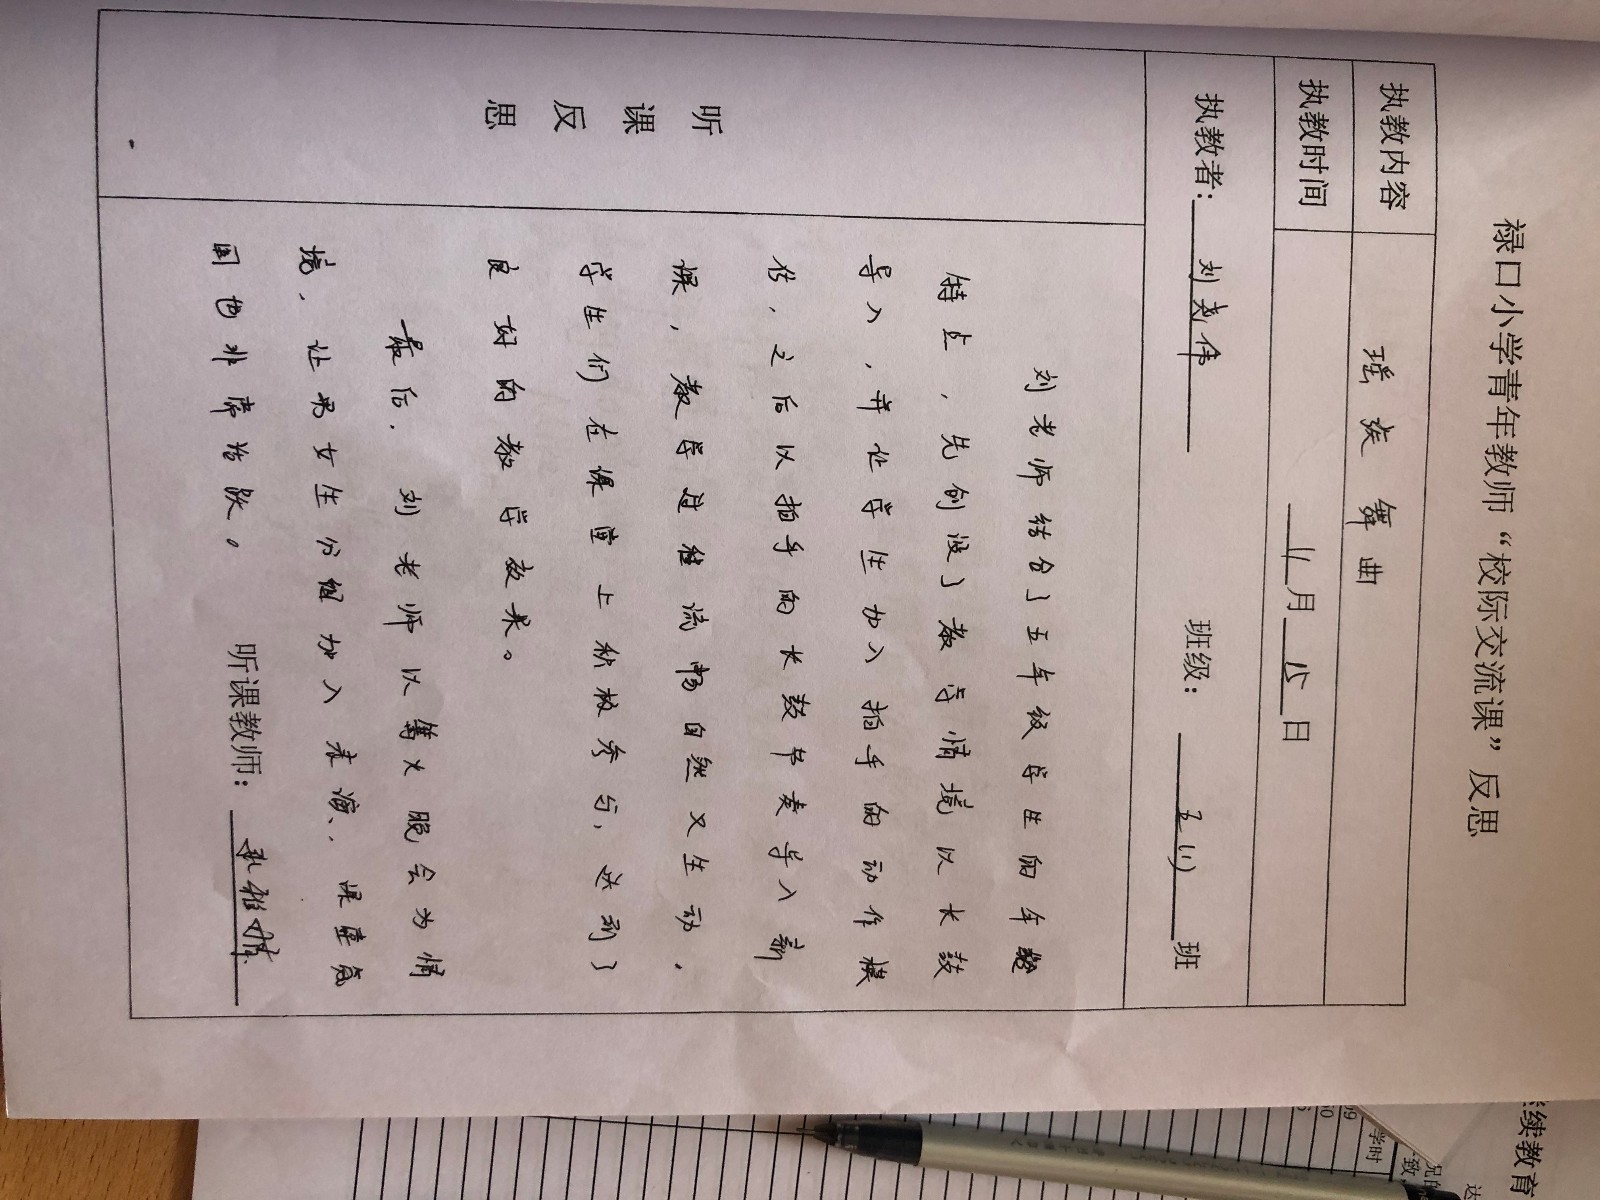 禄口小学青年教师“校际交流课”反思
执教内容 瑶族舞曲
执教时间 11月15日
执教者: 刘尧伟 班级: 五(1)班
听课反思
刘老师结合了五年级学生的年龄
特点,先创设了教学情境以长鼓
导入,并让学生加入拍手的动作模
仿,之后以拍手的长鼓节奏导入新
课,教学过程流畅自然又生动,
学生们在课堂上积极参与,达到了
良好的教学效果。
最后,刘老师以篝火晚会为情
境,让男女生分组加入表演,课堂气
围也非常活跃。
听课教师:
继续教育
学时
一致
达